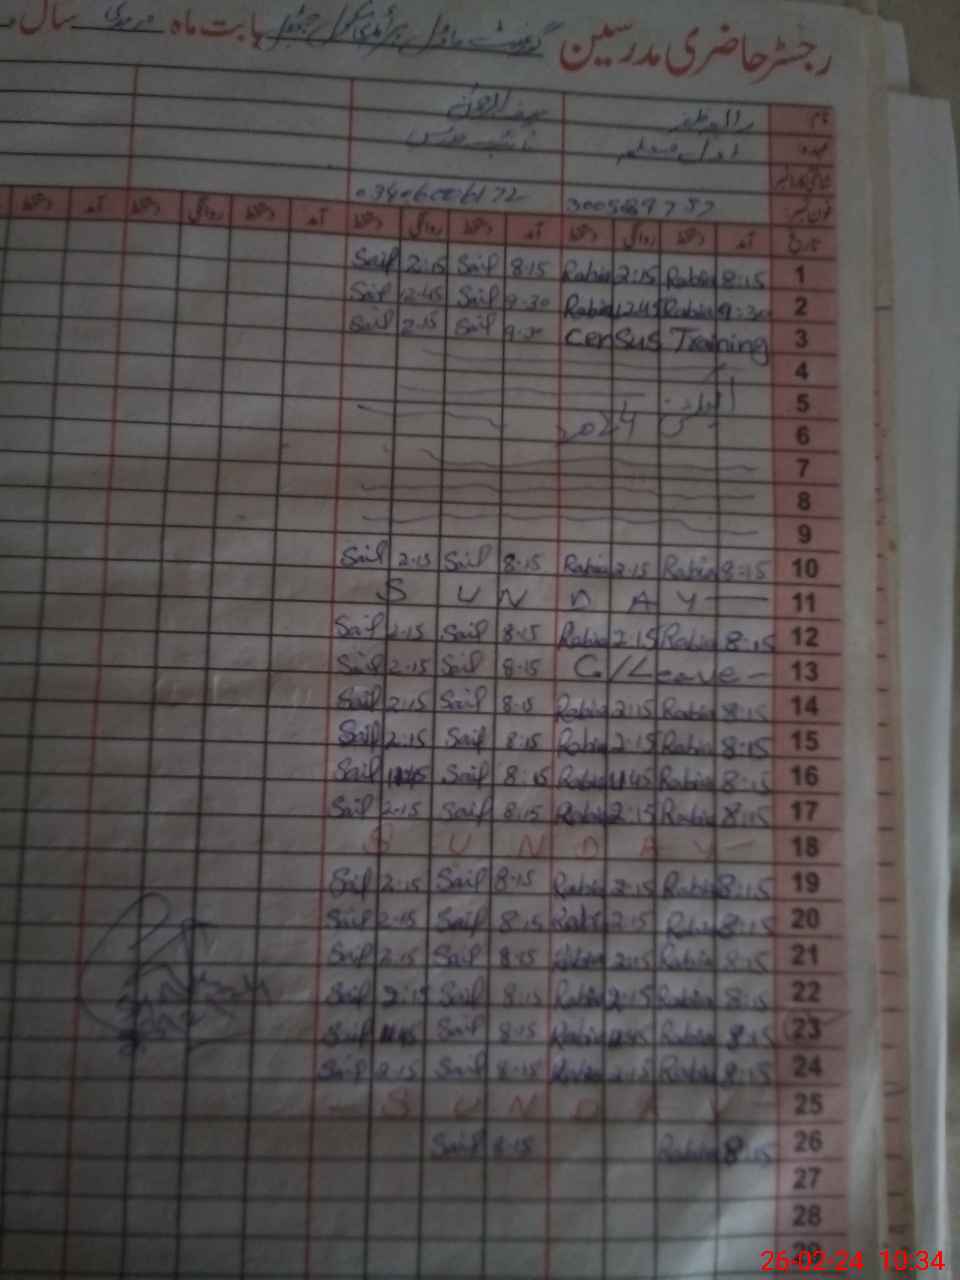 رجسٹر حاضری مدرسین گورنمنٹ ماڈل پرائمری سکول بابت ماہ فروری سال
نام
عہدہ نائب مدرس
شناختی کارڈ نمبر
فون نمبر 03406006172
تاریخ آمد دستخط روانگی دستخط آمد دستخط روانگی دستخط آمد دستخط روانگی دستخط آمد دستخط
Saif 2:15 Saif 8:15 Rabia 2:15 Rabia 8:15 1
Saif 12:45 Saif 9:30 Rabia 12:45 Rabia 9:30 2
Saif 2:15 Saif 9:30 Census Training 3
4
الیکشن 2024 5
6
7
8
9
Saif 2:15 Saif 8:15 Rabia 2:15 Rabia 8:15 10
S U N D A Y 11
Saif 2:15 Saif 8:15 Rabia 2:15 Rabia 8:15 12
Saif 2:15 Saif 8:15 C/Leave 13
Saif 2:15 Saif 8:15 Rabia 2:15 Rabia 8:15 14
Saif 2:15 Saif 8:15 Rabia 2:15 Rabia 8:15 15
Saif 11:45 Saif 8:15 Rabia 11:45 Rabia 8:15 16
Saif 2:15 Saif 8:15 Rabia 2:15 Rabia 8:15 17
S U N D A Y 18
Saif 2:15 Saif 8:15 Rabia 2:15 Rabia 8:15 19
Saif 2:15 Saif 8:15 Rabia 2:15 Rabia 8:15 20
Saif 2:15 Saif 8:15 Rabia 2:15 Rabia 8:15 21
Saif 2:15 Saif 8:15 Rabia 2:15 Rabia 8:15 22
Saif 11:45 Saif 8:15 Rabia 11:45 Rabia 8:15 23
Saif 2:15 Saif 8:15 Rabia 2:15 Rabia 8:15 24
S U N D A Y 25
Saif 8:15 Rabia 8:15 26
27
28
29
26-02-24 10:34